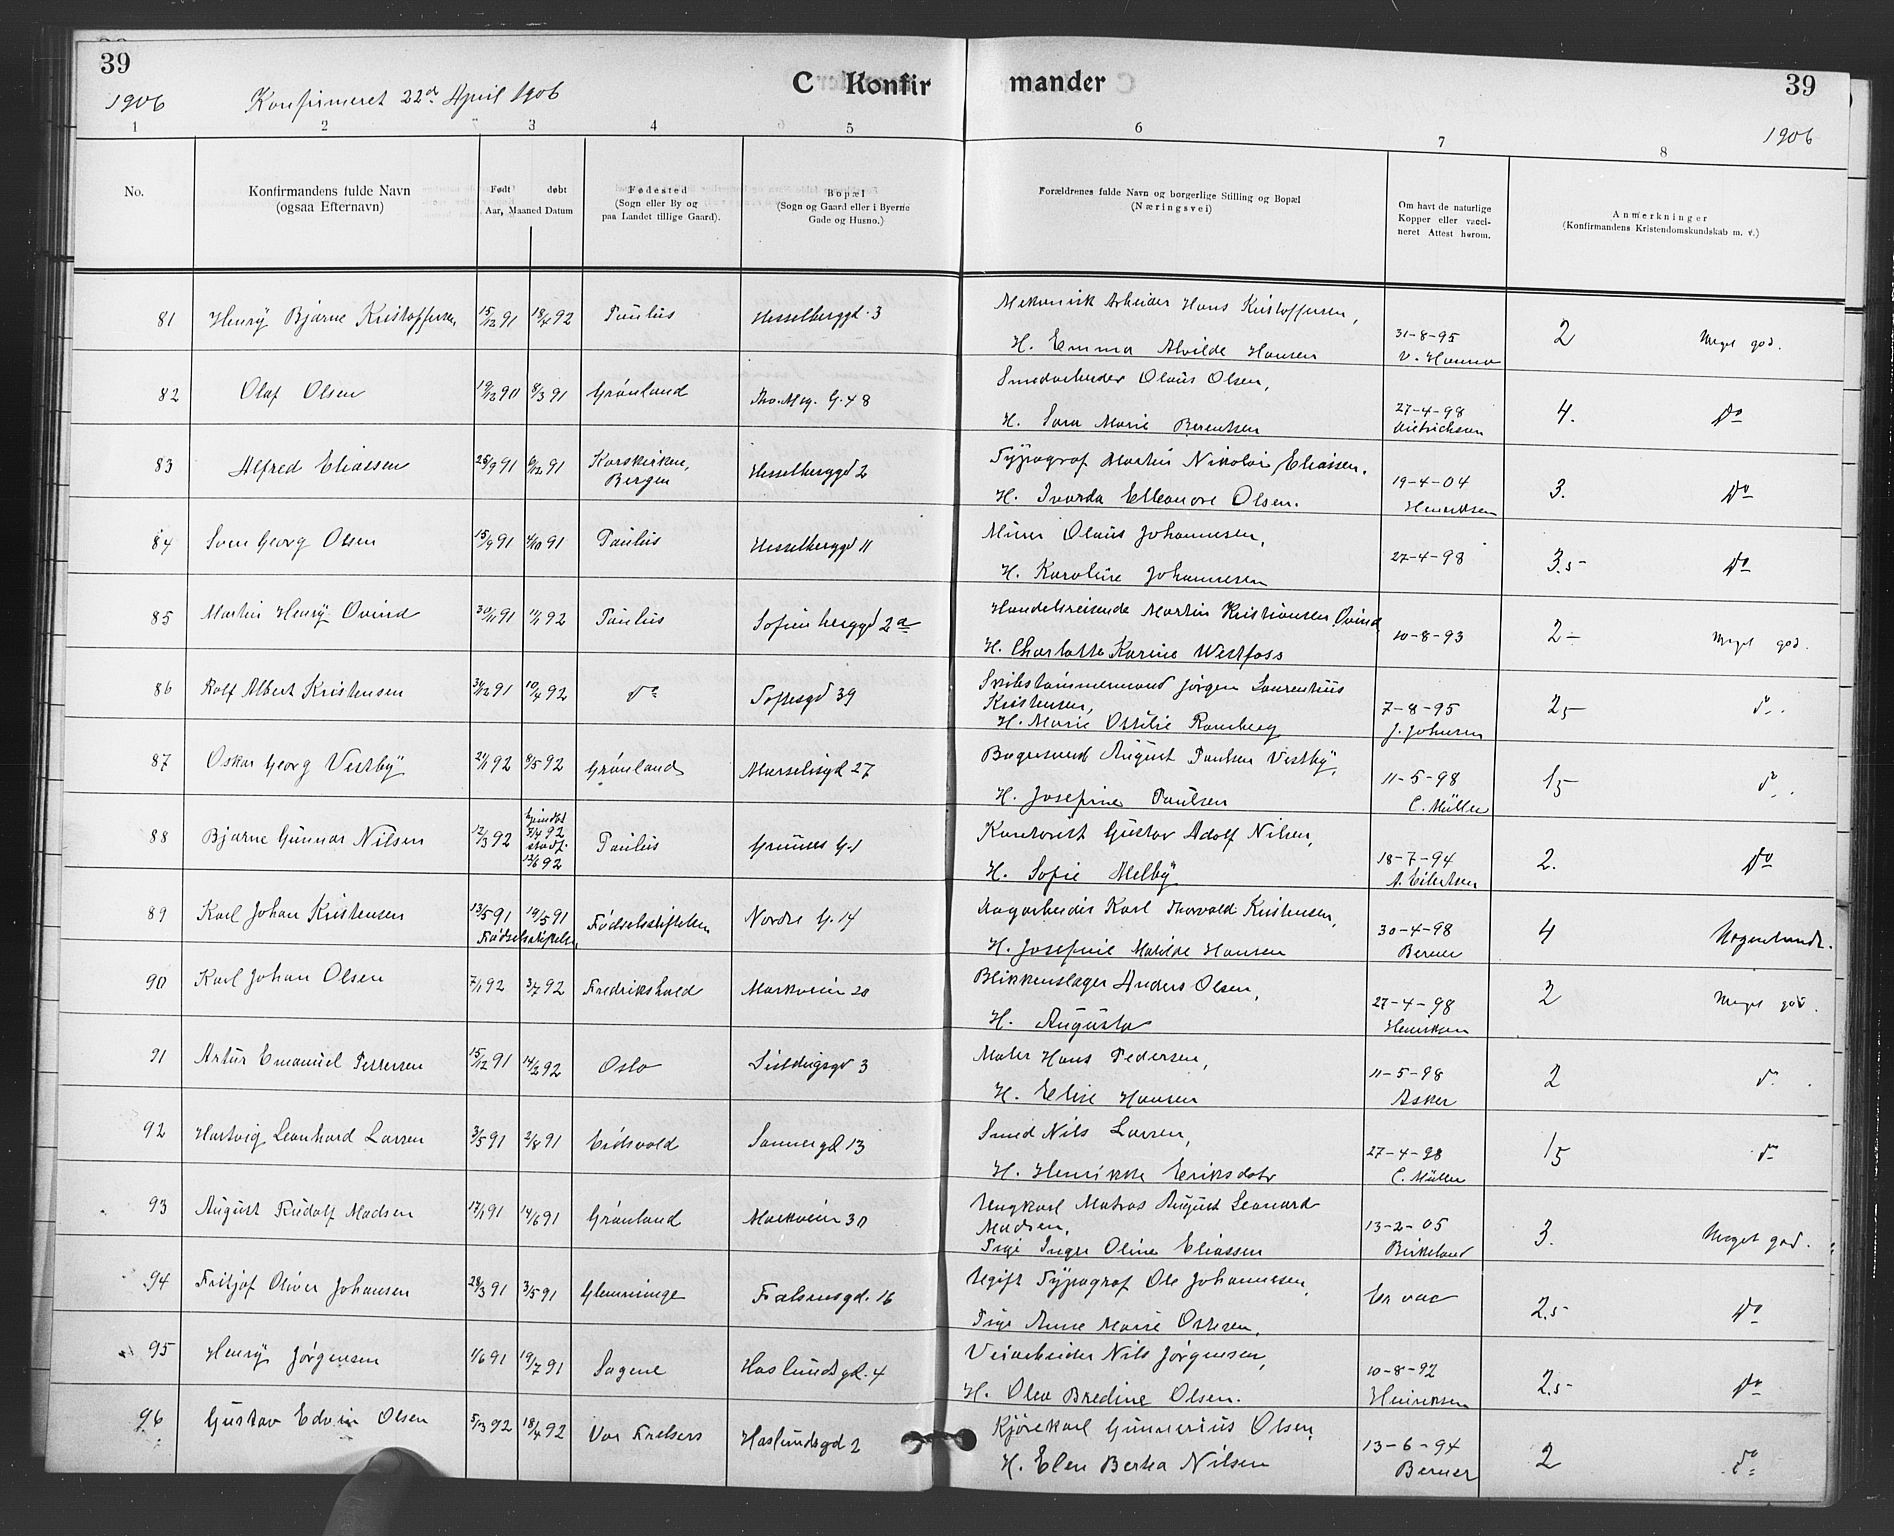 39
C Konfirmander
39
1906 Konfirmeret 22de April 1906
1906
1 2 3 4 5 6 7 8
No. Konfirmandens fulde Navn (ogsaa Efternavn) Født døbt Aar, Maaned Datum Fødested (Sogn eller By og paa Landet tillige Gaard). Bopæl (Sogn og Gaard eller i Byerne Gade og Husno.) Forældrenes fulde Navn og borgerlige Stilling og Bopæl (Næringsvei) Om havt de naturlige Kopper eller vaccineret Attest herom. Anmerkninger (Konfirmandens Kristendomskundskab m. v.)
81 Henry Bjarne Kristoffersen 15/12 91 18/4 92 Paulus Hesselberggd. 3 Mekanisk Arbeider Hans Kristoffersen,
H. Emma Alvilde Hansen 31-8-95 2 Meget god.
82 Olaf Olsen 19/12 90 8/3 91 Grønland Ths. Mey. G. 48 Smedarbeider Olaus Olsen,
H. Sara Marie Berentsen 27-4-98 Dietrichson 4. do
83 Alfred Eliassen 25/9 91 6/12 91 Korskirken, Bergen Hesselberggd 2 Typograf Martin Nikolai Eliassen.
H. Ivarda Elleonore Olsen. 19-4-04 Henriksen 3. do
84 Sven Georg Olsen 15/9 91 4/10 91 Paulus Hesselberggd 11 Murer Olaus Johannesen,
H. Karoline Johannesen 27-4-98 3.5- do
85 Martin Henry Ovind 30/11 91 1/1 92 Paulus Sofienberggd 2a Handelsreisende Martin Kristiansen Ovind
H. Charlotte Karine Westfoss 10-8-93 2- Meget god.
86 Rolf Albert Kristensen 31/12 91 10/4 92 do Toftesgd 39 Skibstømmermand Jørgen Laurentius
Kristensen,
H. Marie Ottilie Ramberg 7-8-95 J. Johnsen 25- d
87 Oskar Georg Vestby 21/1 92 8/5 92 Grønland Marselisgd 27 Bagersvend August Paulsen Vestby,
H. Josefine Paulsen 11-5-98 C. Müller 15 d
88 Bjarne Gunnar Nilsen 12/3 92 hjemdbt 5/4 92 stadf. 12/6 92 Paulus Grüners G. 1 Kontorist Gustav Adolf Nilsen,
H. Sofie Melby 18-7-94 A. Eilertsen 2. do
89 Karl Johan Kristensen 13/5 91 19/5 91 Fødselsstiftelsen Fødselsstiftelsen Nordre G. 14 Dagarbeider Karl Thorvald Kristensen,
H. Josefine Matilde Hansen 30-4-98 Berner 4 Nogenlunde.
90 Karl Johan Olsen 7/1 92 3/7 92 Fredrikshald Markveien 20 Blikkenslager Anders Olsen,
H. Augusta 27-4-98 Henriksen 2 Meget god.
91 Artur Emanuel Pettersen 15/12 91 14/2 92 Oslo Seildugsgd 3 Maler Hans Pedersen,
H. Elise Hansen 11-5-98 Asker 2 d
92 Hartvig Leonhard Larsen 3/5 91 2/8 91 Eidsvold Sannergd 13 Smed Nils Larsen,
H. Henrikke Eriksdatr 27-4-98 C. Müller 15 d
93 August Rudolf Madsen 17/1 91 14/6 91 Grønland Markveien 30 Ungkarl Matros August Leonard
Madsen,
Pige Inga Oline Eliassen 13-2-05 Birkeland 3. Meget god.
94 Fritjof Oliver Johansen 28/3 91 3/5 91 Glemminge Falsensgd. 16 Ugift Typograf Ole Johannesen,
Pige Anne Marie Ottesen, Er vac 2.5- do
95 Henry Jørgensen 1/6 91 19/7 91 Sagene Haslundsgd. 4 Veiarbeider Nils Jørgensen,
H. Olea Bredine Olsen. 10-8-92 Henriksen 2.5- do
96 Gustav Edvin Olsen 5/3 92 18/4 92 Vor Frelsers Haslundsgd 2 Kjørekarl Gunnerius Olsen,
H. Elen Berta Nilsen 13-6-94 Berner 2 do